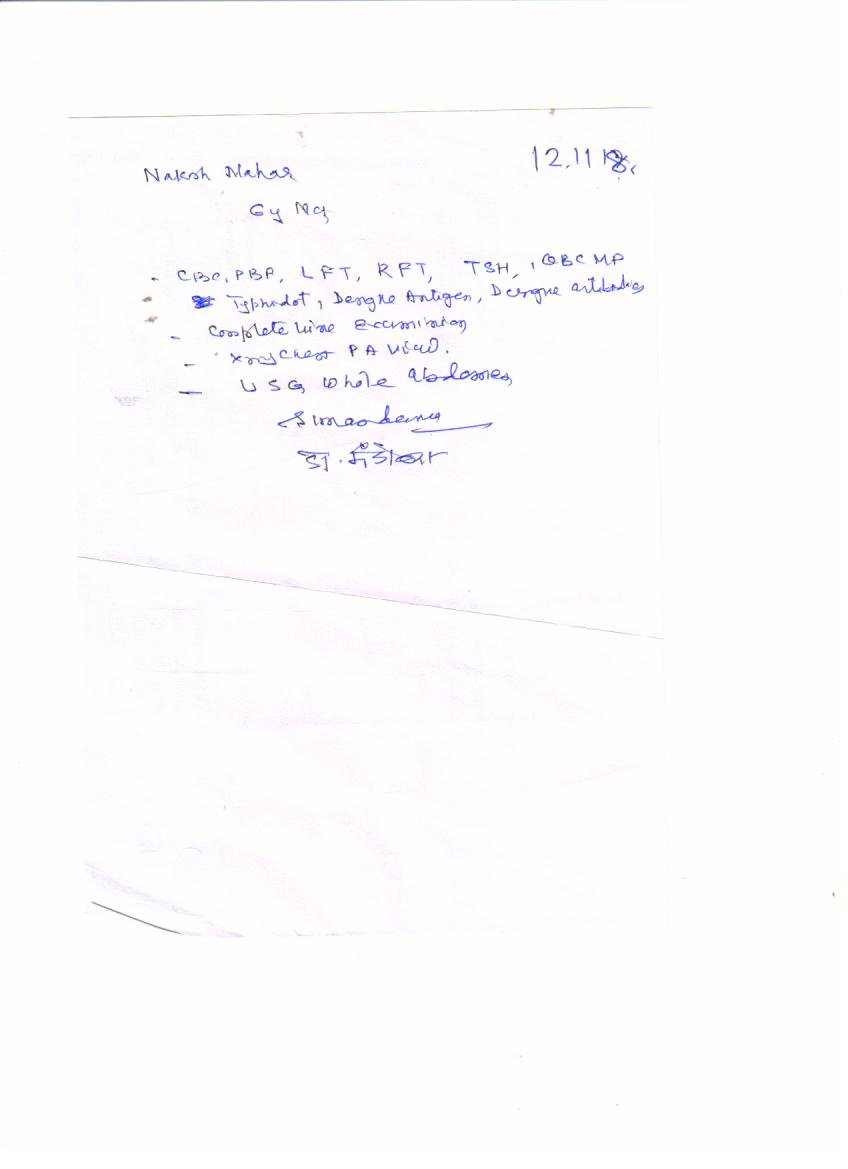 Naksh Mahar 12.11.18.
6y M
- CBC, PBP, LFT, RFT, TSH, QBC MP
Typhidot, Dengue Antigen, Dengue antibodies
- Complete Urine examination
- Xray Chest PA view.
- USG Whole Abdomen
डा.